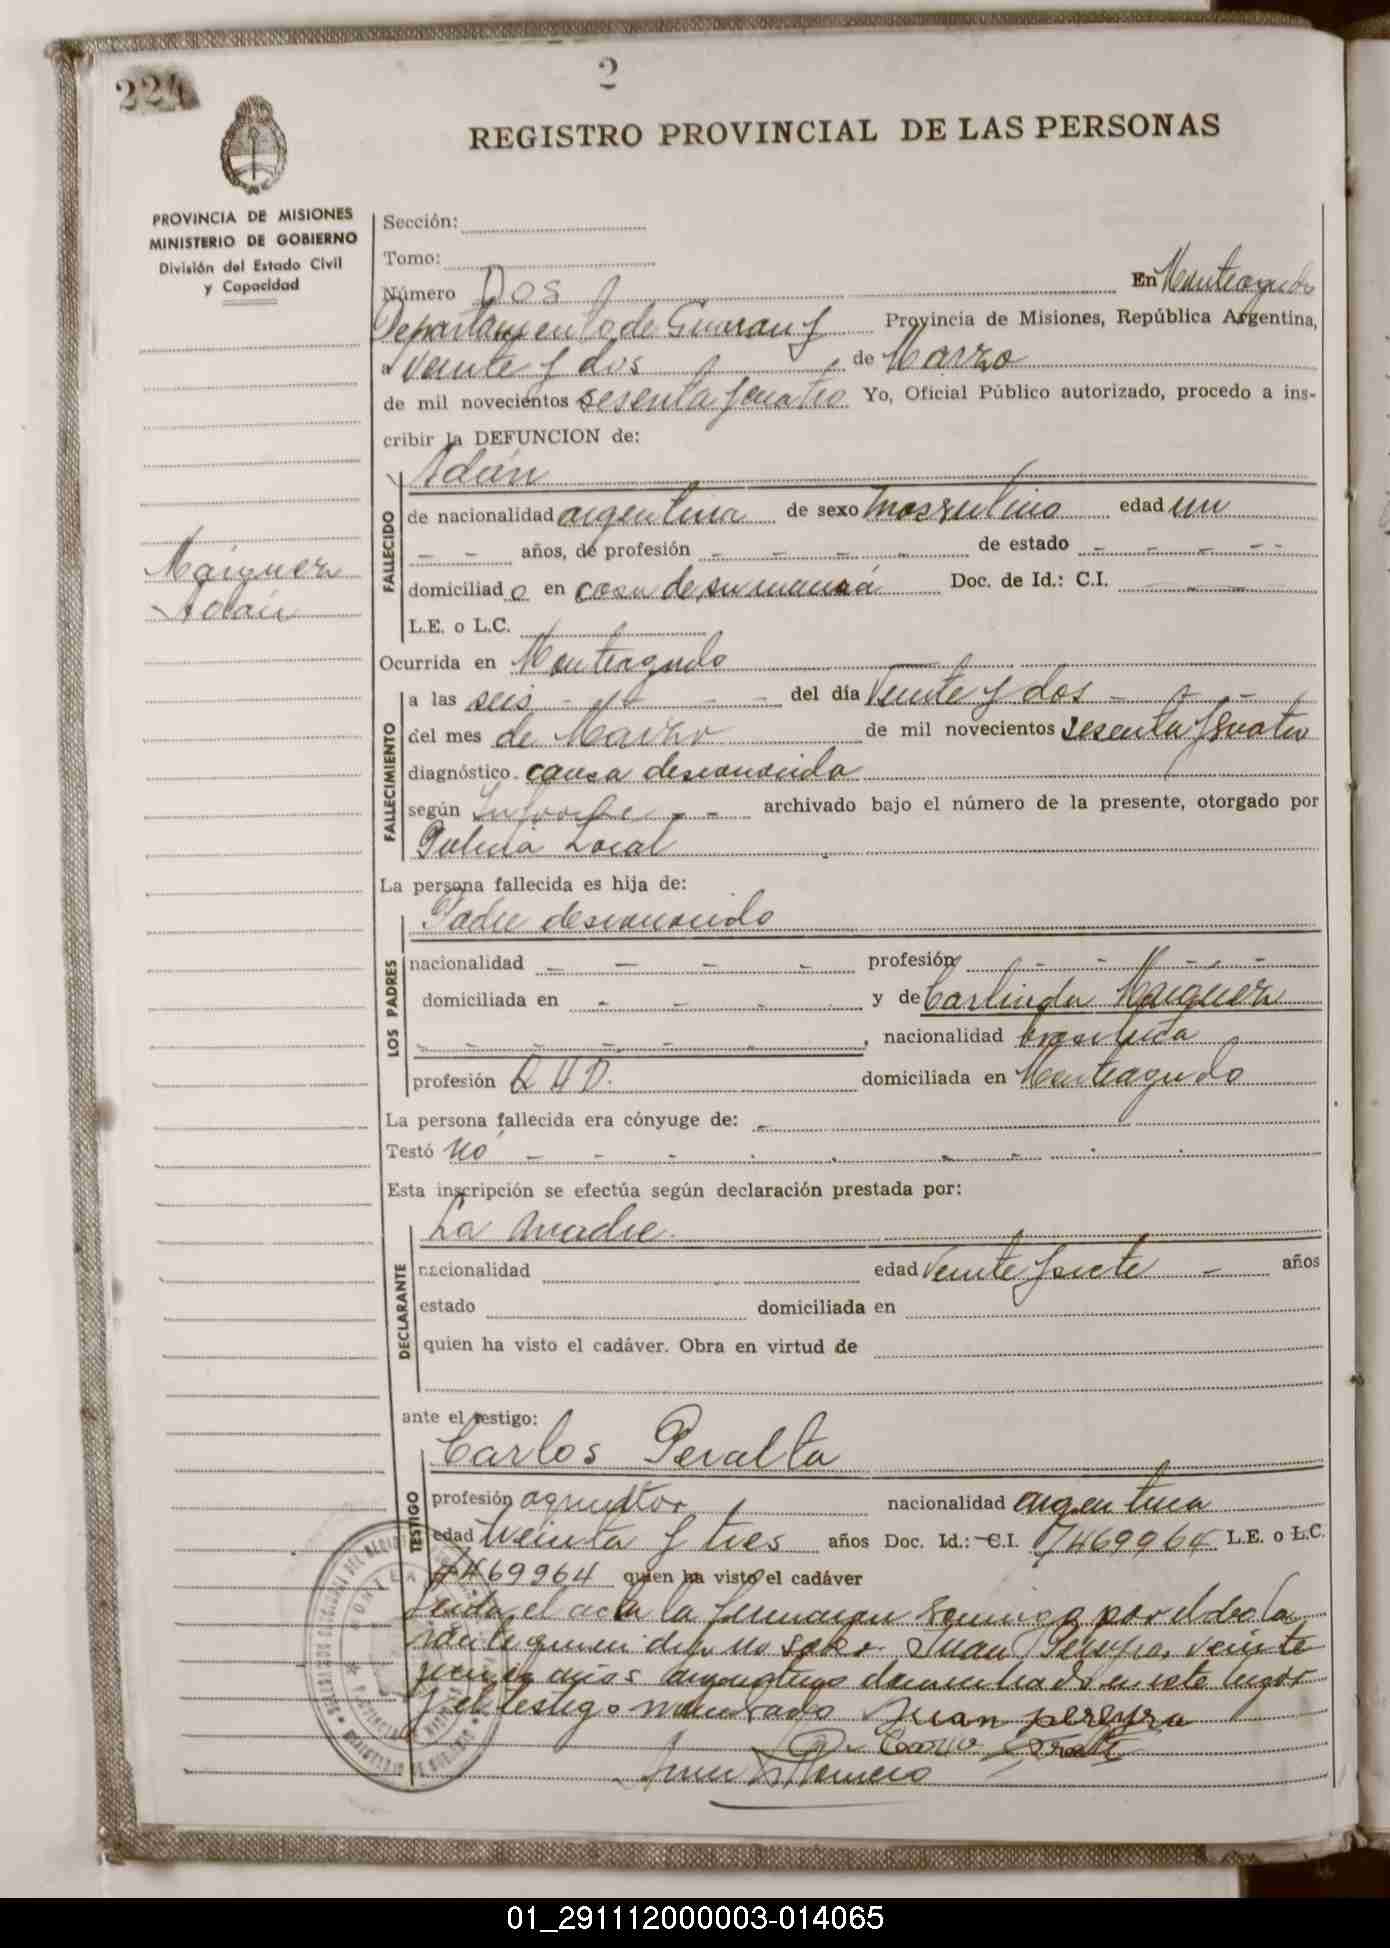 224
2
REGISTRO PROVINCIAL DE LAS PERSONAS
PROVINCIA DE MISIONES
MINISTERIO DE GOBIERNO
División del Estado Civil
y Capacidad
Sección:
Tomo:
Número Dos En Monteagudo
Departamento de Guaraní Provincia de Misiones, República Argentina,
a veinte y dos de Marzo
de mil novecientos sesenta y cuatro Yo, Oficial Público autorizado, procedo a ins-
cribir la DEFUNCION de:
Adán
FALLECIDO
de nacionalidad argentina de sexo masculino edad un
- - años, de profesión - - - - de estado - - - - -
domiciliado en casa de su mamá Doc. de Id.: C.I.
L.E. o L.C.
Adán
Ocurrida en Monteagudo
FALLECIMIENTO
a las seis - - - - del día veinte y dos - - -
del mes de Marzo de mil novecientos sesenta y cuatro
diagnóstico causa desconocida
según Informe - - archivado bajo el número de la presente, otorgado por
Policía Local
La persona fallecida es hija de:
Padre desconocido
LOS PADRES
nacionalidad - - - - profesión - - - - -
domiciliada en - - - - y de Carlinda
- - - - - -, nacionalidad brasileña
profesión Q.H.D. domiciliada en Monteagudo
La persona fallecida era cónyuge de: -
Testó no - - - - - - - - -
Esta inscripción se efectúa según declaración prestada por:
La madre
DECLARANTE
nacionalidad edad veinte y siete - años
estado domiciliada en
quien ha visto el cadáver. Obra en virtud de
ante el testigo:
Carlos Peralta
TESTIGO
profesión agricultor nacionalidad argentina
edad treinta y tres años Doc. Id.: C.I. 7469964 L.E. o L.C.
7469964 quien ha visto el cadáver
Leida el acta la firmaron conmigo por el decla
rante quien dijo no saber Juan Pereyra, veinte
años argentino domiciliado en este lugar
y el testigo mencionado Juan pereyra
01_291112000003-014065